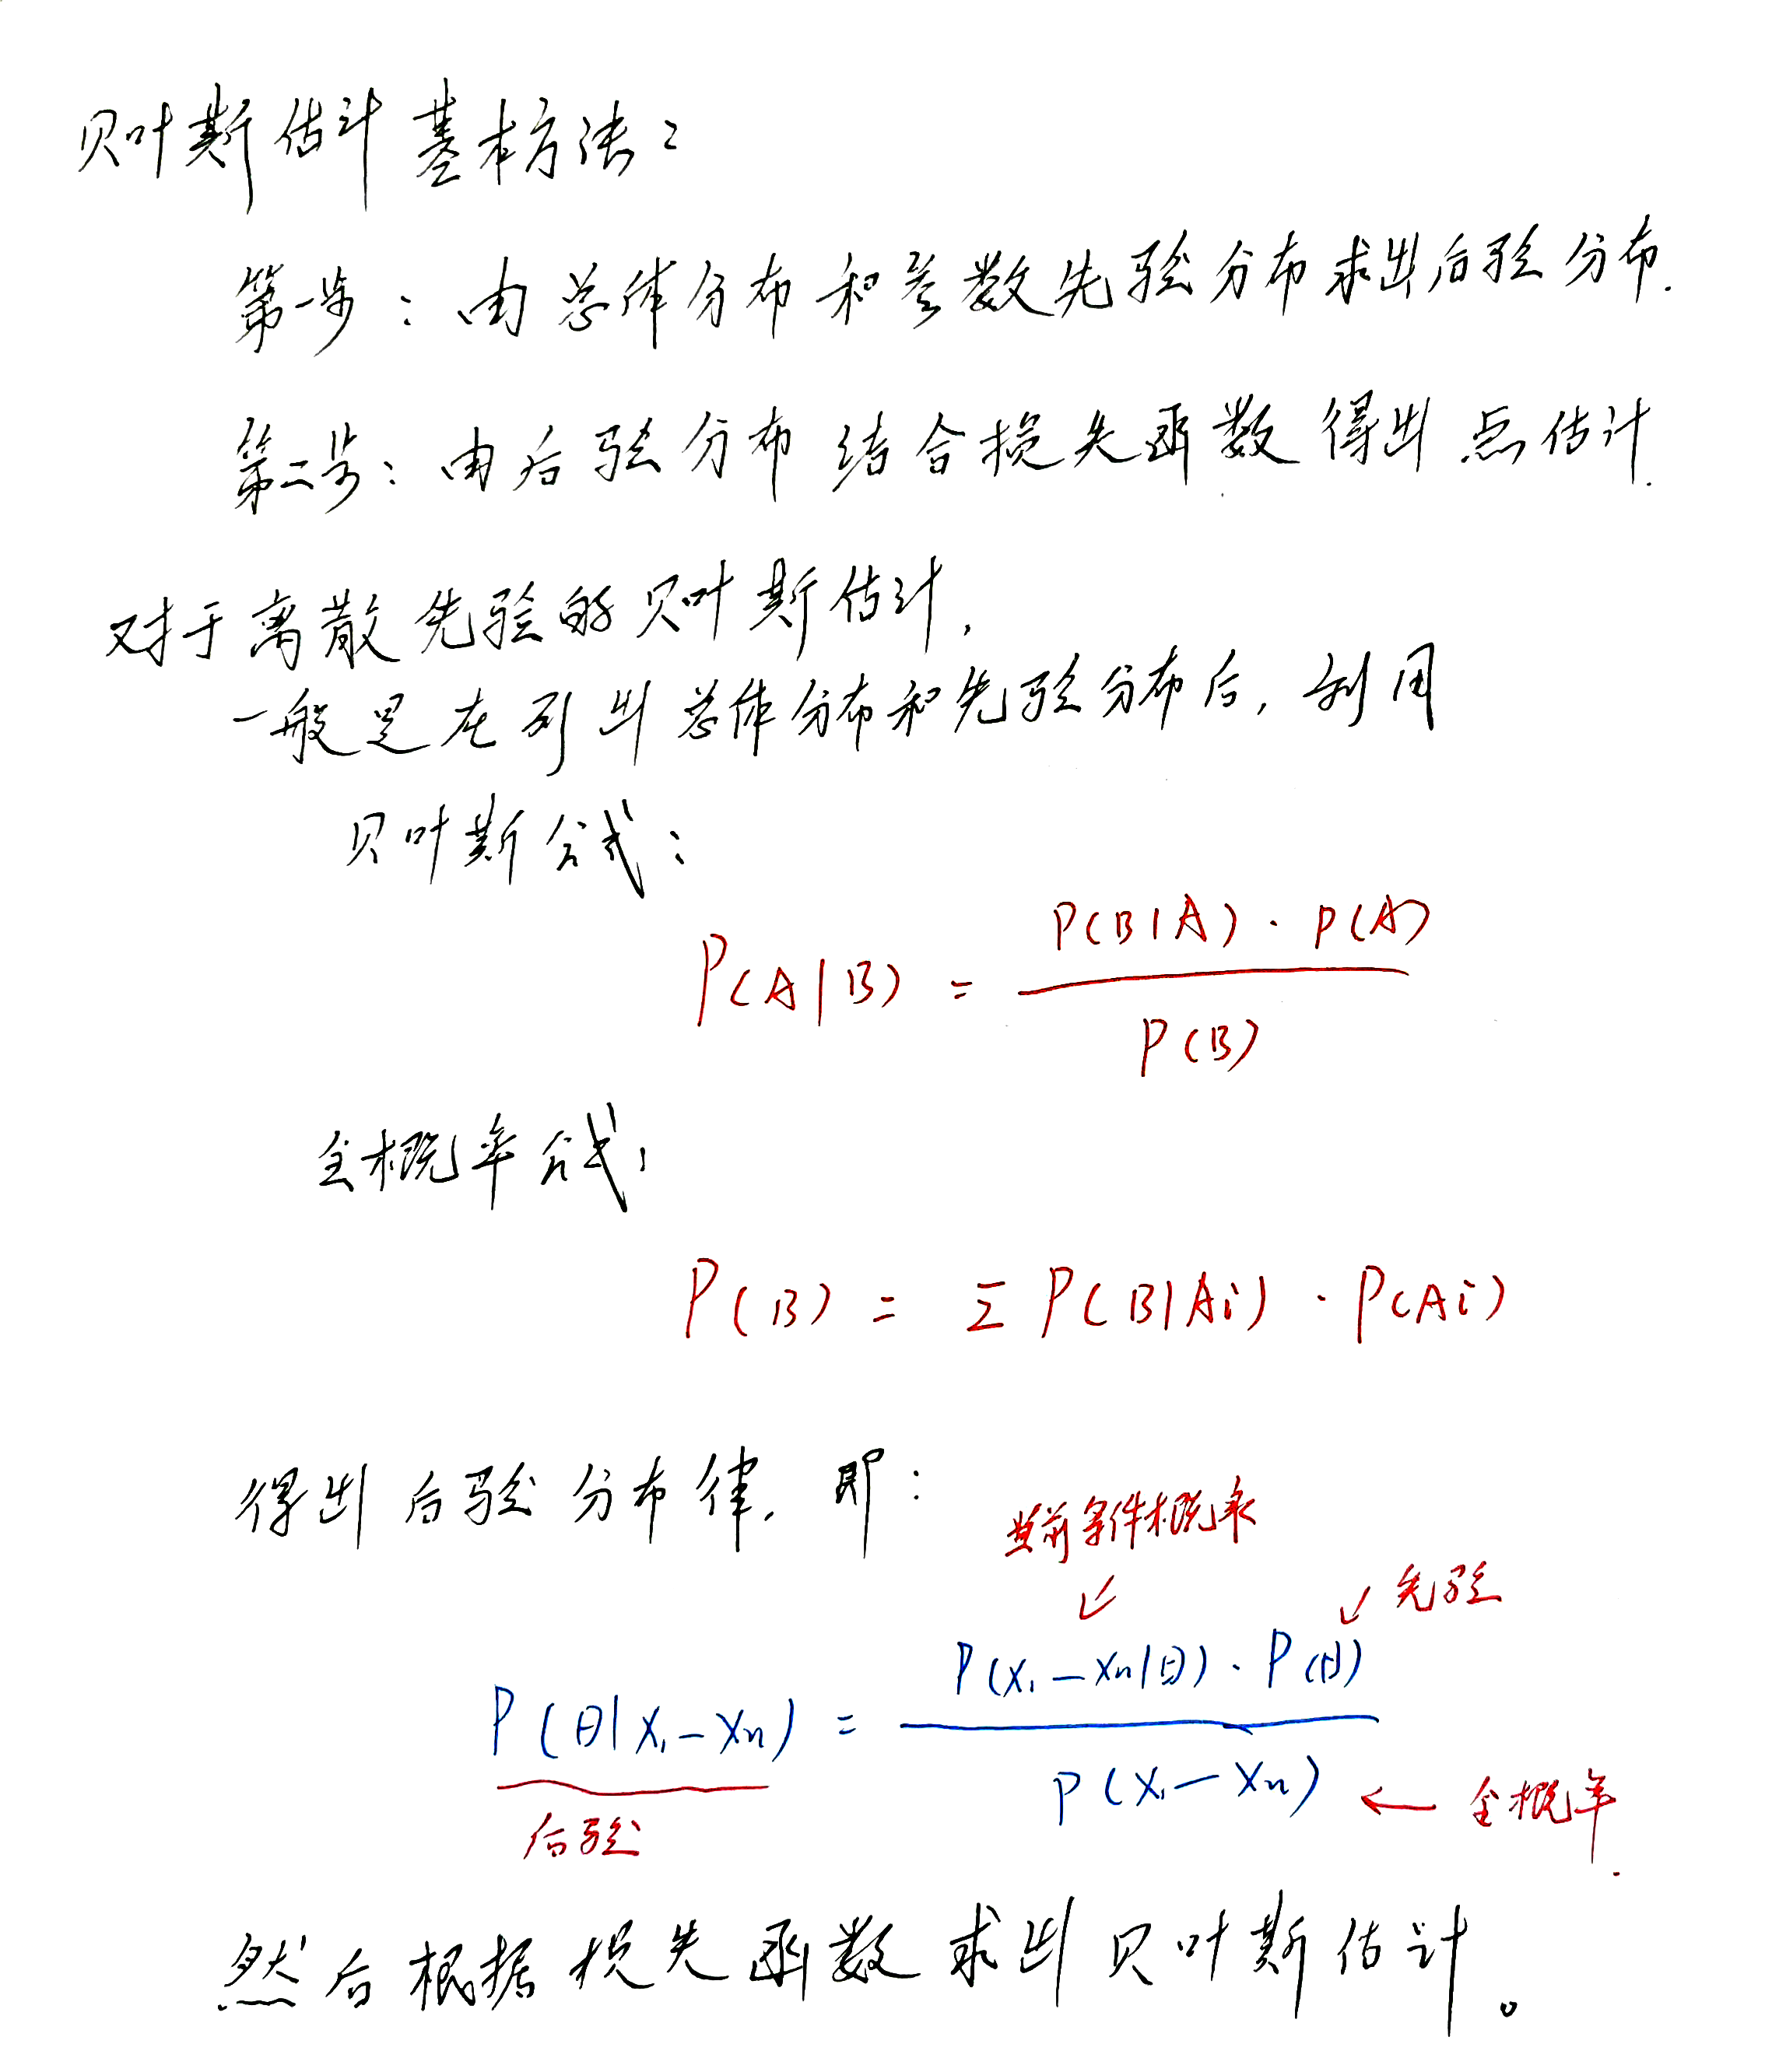 贝叶斯估计基本方法：
第一步：由总体分布和参数先验分布求出后验分布.
第二步：由后验分布结合损失函数得出点估计.
对于离散先验的贝叶斯估计，
一般是在列出总体分布和先验分布后，利用
贝叶斯公式：
P(A|B) = P(B|A)·P(A) / P(B)
全概率公式：
P(B) = Σ P(B|Ai)·P(Ai)
得出后验分布律，即：
当前条件概率
先验
P(θ|X₁—Xn) = P(X₁—Xn|θ)·P(θ) / P(X₁—Xn) ← 全概率.
后验
然后根据损失函数求出贝叶斯估计。